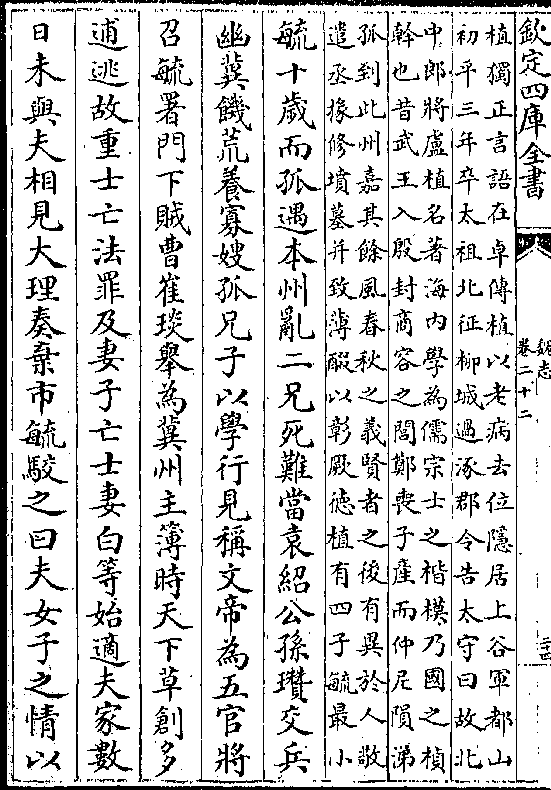 欽定四庫全書
魏志
卷二十二
植獨正言語在卓傳植以老病去位隱居上谷軍都山
初平三年卒太祖北征柳城過涿郡令告太守曰故北
中郎將盧植名著海内學為儒宗士之楷模乃國之楨
幹也昔武王入殷封商容之閭鄭喪子產而仲尼隕涕
孤到此州嘉其餘風春秋之義賢者之後有異於人敬
遣丞掾修墳墓并致薄醊以彰厥徳植有四子毓最小
毓十歲而孤遇本州亂二兄死難當袁紹公孫瓚交兵
幽冀饑荒養寡嫂孤兄子以學行見稱文帝為五官將
召毓署門下賊曹崔琰舉為冀州主簿時天下草創多
逋逃故重士亡法罪及妻子亡士妻白等始適夫家數
日未與夫相見大理奏棄市毓駮之曰夫女子之情以